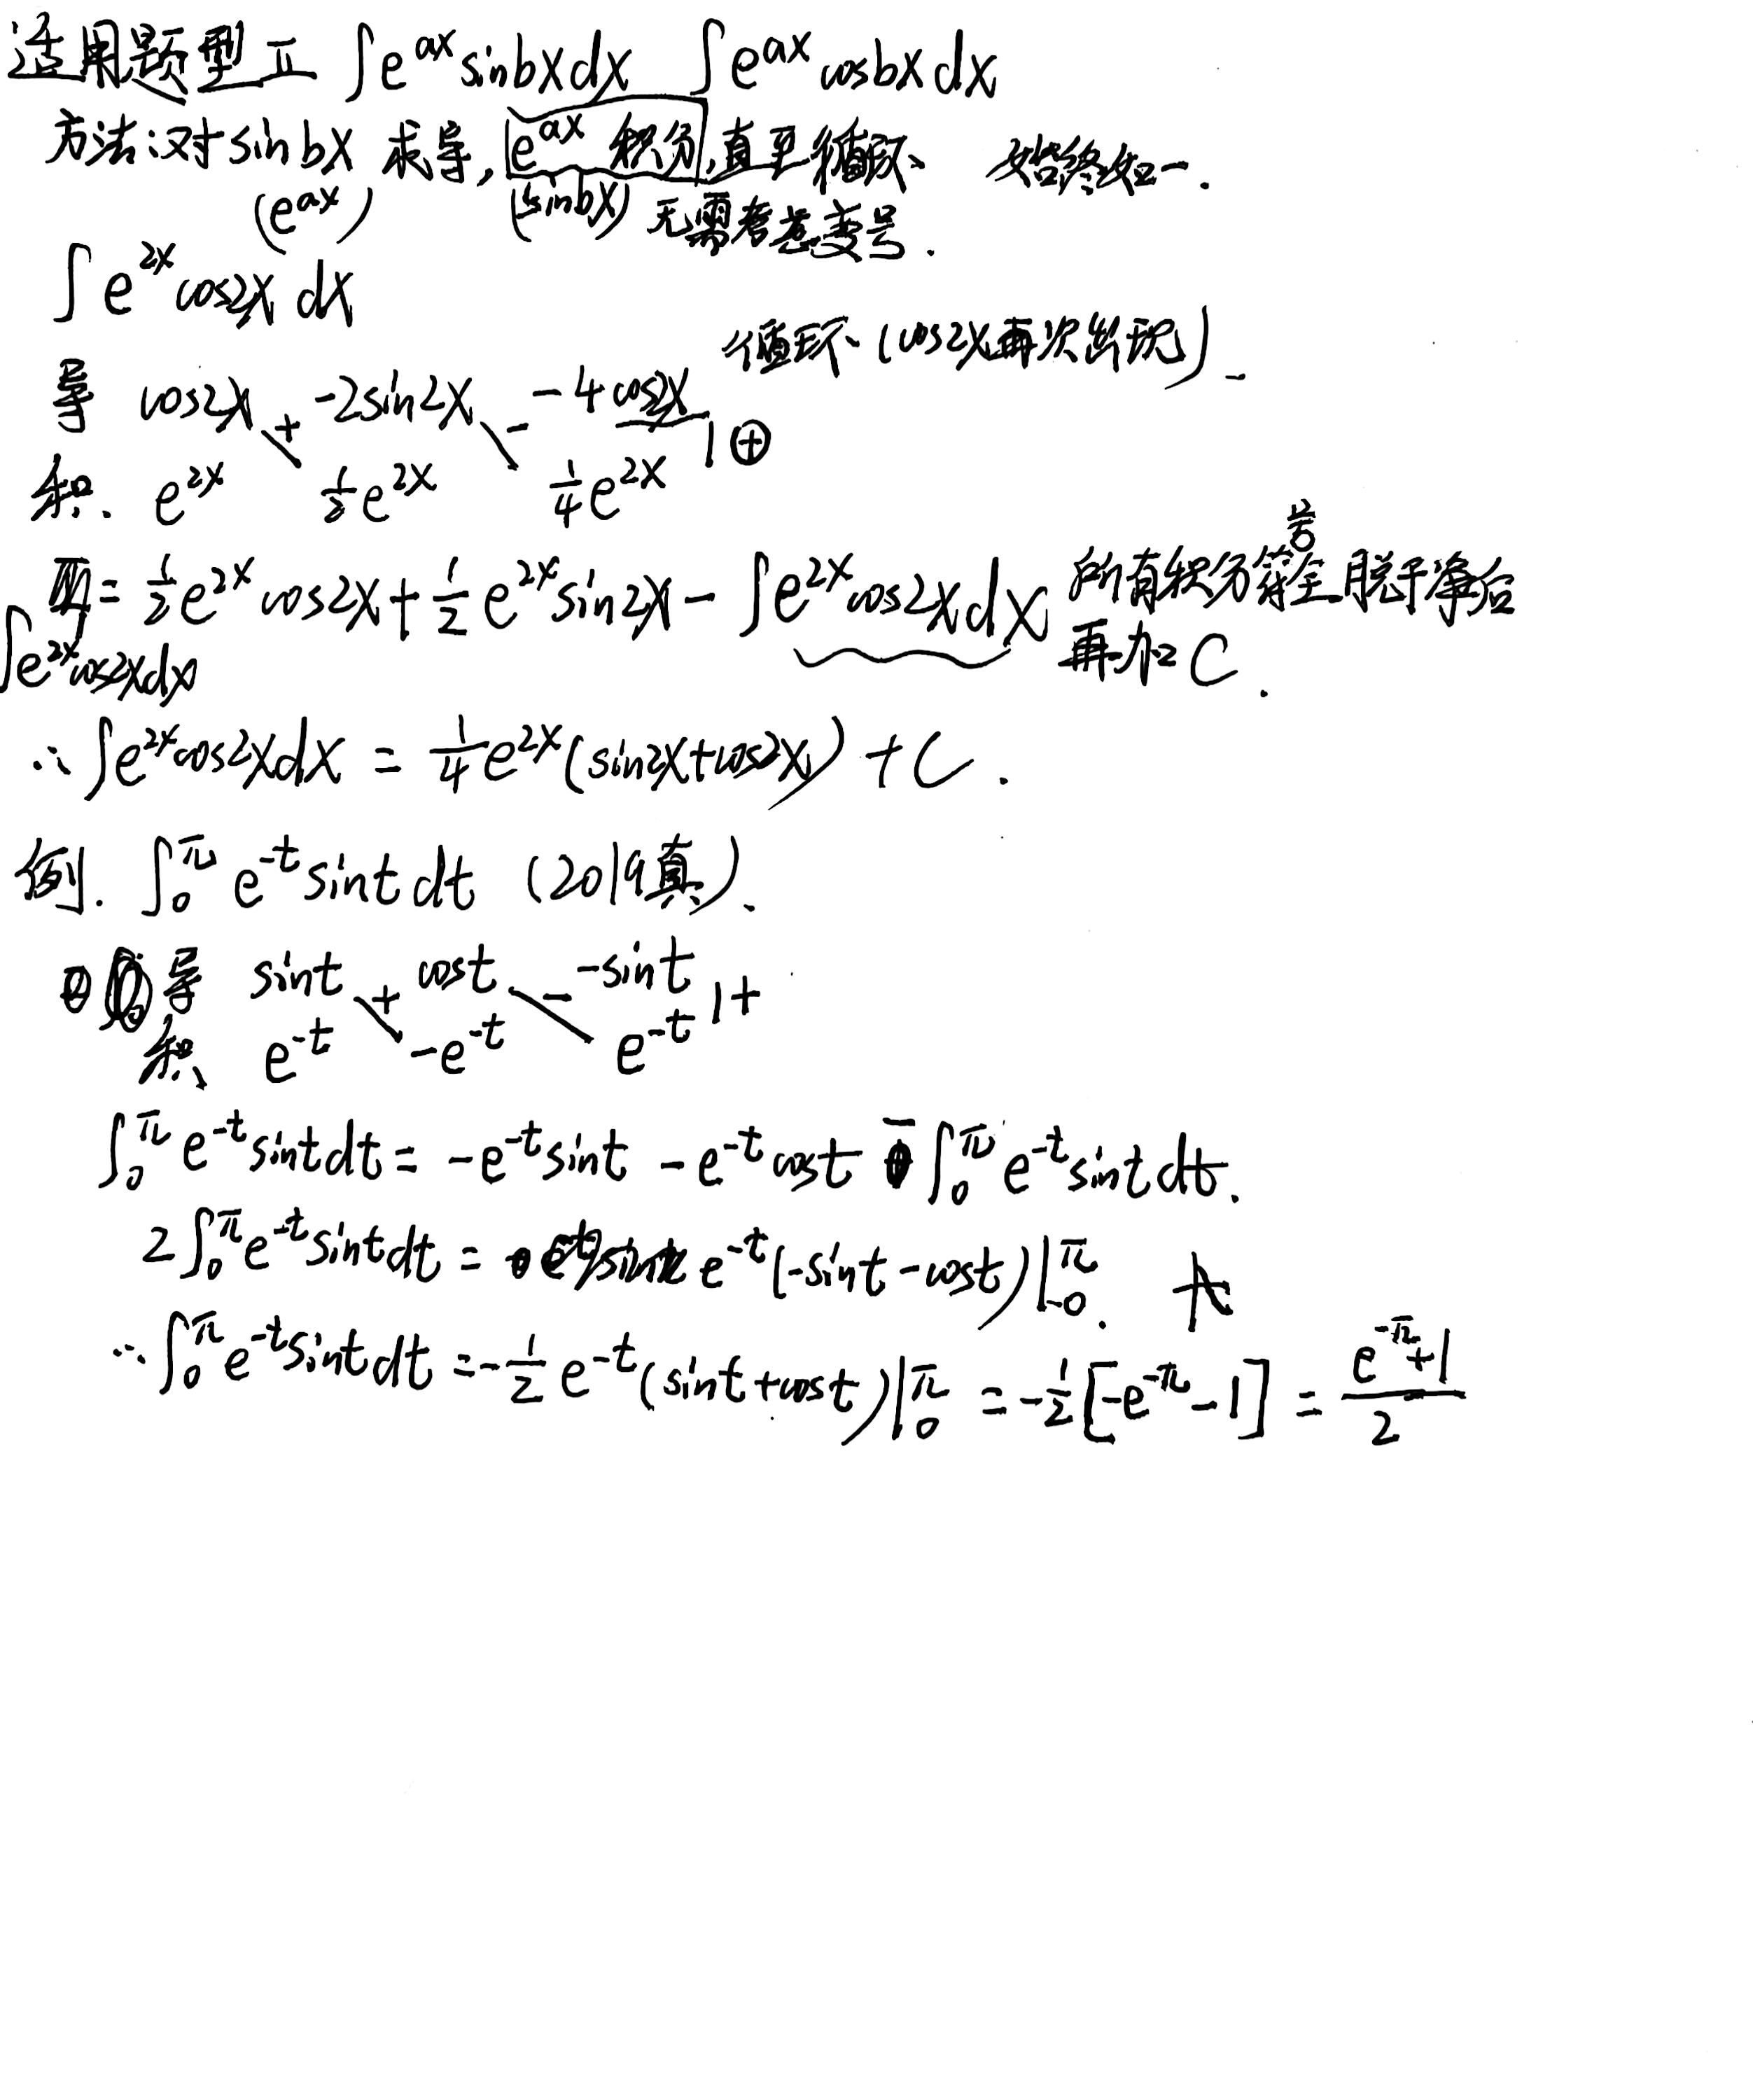 适用题型 II ∫e^{ax}sinbxdx ∫e^{ax}cosbxdx
方法:对sinbx求导,e^{ax}积分,直至循环、始终如一.
(e^{ax}) (sinbx) 无需考虑变号.
∫e^{2x}cos2xdx
循环(cos2x再次出现).
导 cos2x + -2sin2x - -4cos2x
积. e^{2x} 1/2e^{2x} 1/4e^{2x} | ⊕
= 1/2e^{2x}cos2x+1/2e^{2x}sin2x-∫e^{2x}cos2xdx 所有积分符号全脱干净后
∫e^{2x}cos2xdx 再加C.
∴∫e^{2x}cos2xdx = 1/4e^{2x}(sin2x+cos2x)+C.
例. ∫_0^π e^{-t}sintdt (2019真).
导 sint + cost - -sint
积 e^{-t} -e^{-t} e^{-t} |+
∫_0^π e^{-t}sintdt = -e^{-t}sint - e^{-t}cost - ∫_0^π e^{-t}sintdt.
2∫_0^π e^{-t}sintdt = e^{-t}(-sint-cost)|_0^π.
∴∫_0^π e^{-t}sintdt = -1/2e^{-t}(sint+cost)|_0^π = -1/2[-e^{-π}-1] = (e^{-π}+1)/2